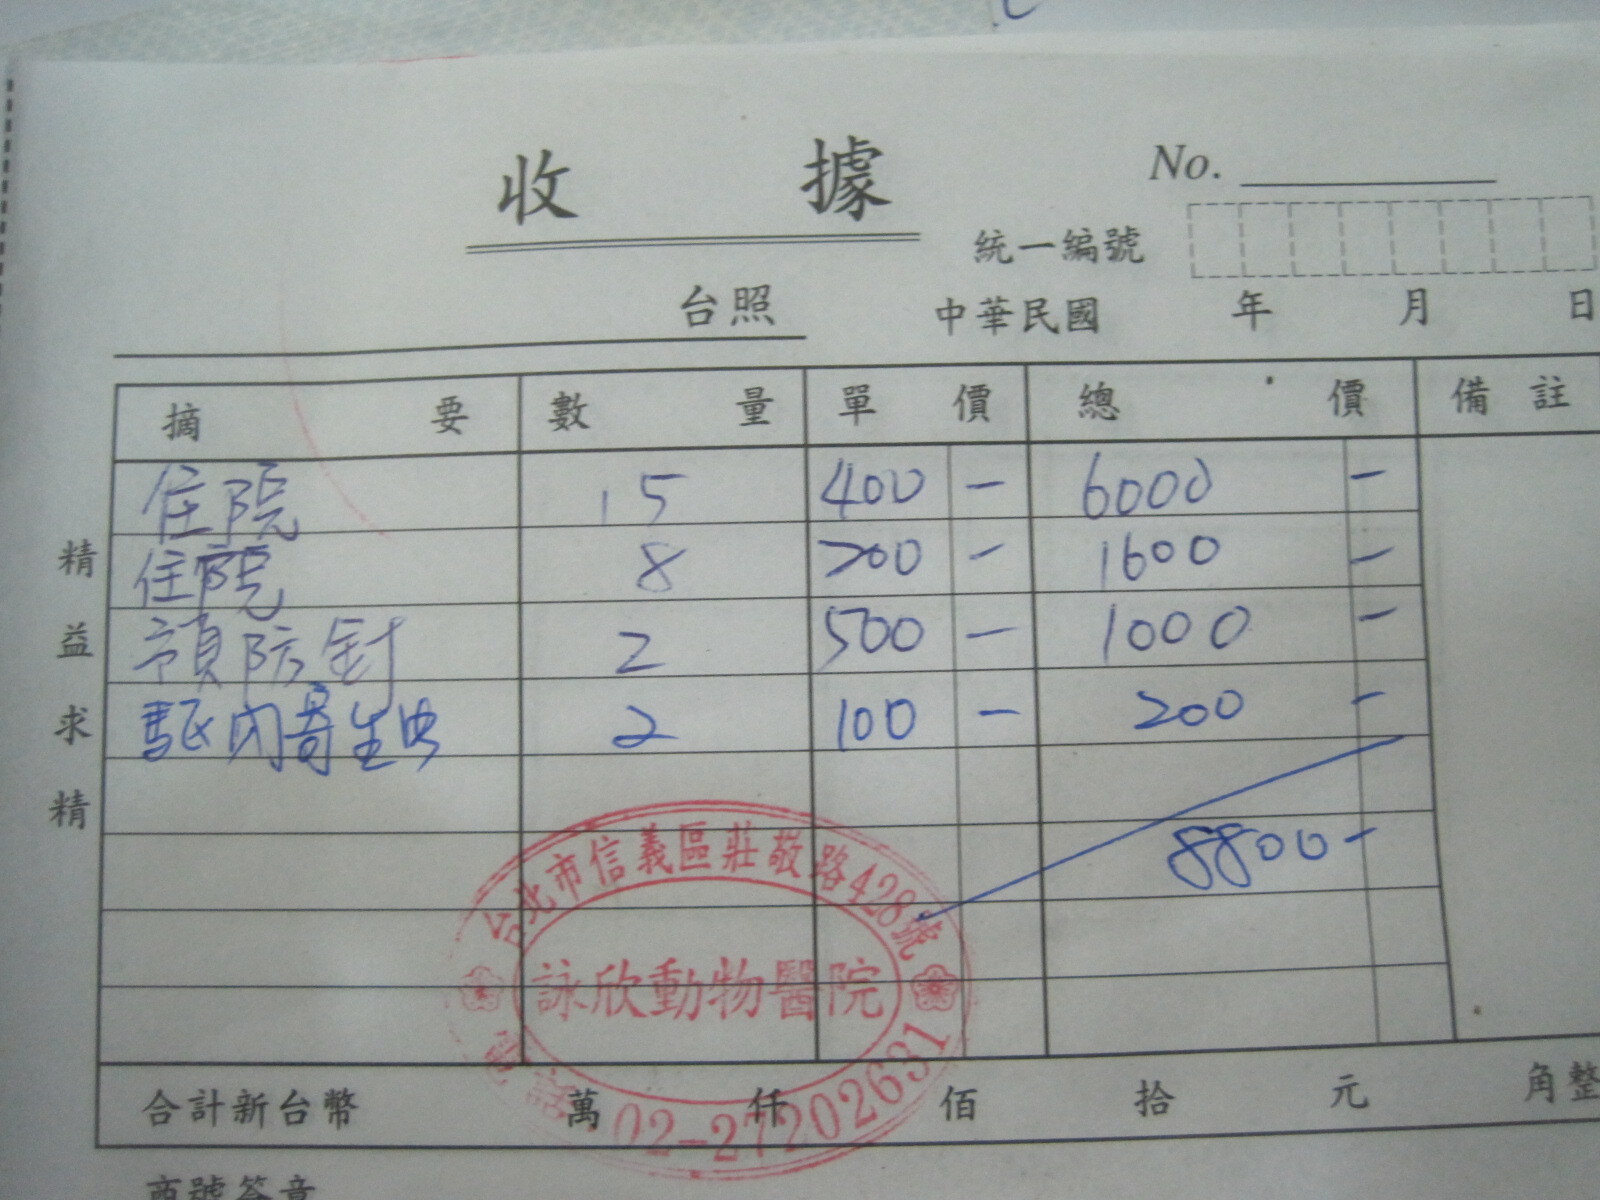 收據
No.
統一編號
台照
中華民國 年 月 日
摘要 數量 單價 總價 備註
住院 15 400 - 6000 -
住院 8 200 - 1600 -
預防針 2 500 - 1000 -
驅內寄生虫 2 100 - 200 -
8800-
精益求精
台北市信義區莊敬路428號
詠欣動物醫院
電話：02-27202631
合計新台幣 萬 仟 佰 拾 元 角整
商號簽章